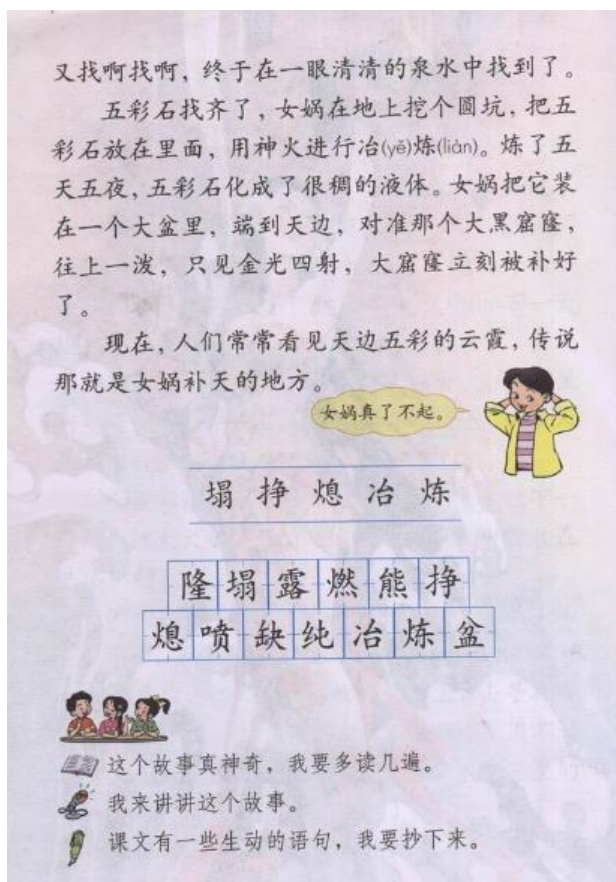 又找啊找啊，终于在一眼清清的泉水中找到了。
五彩石找齐了，女娲在地上挖个圆坑，把五
彩石放在里面，用神火进行冶(yě)炼(liàn)。炼了五
天五夜，五彩石化成了很稠的液体。女娲把它装
在一个大盆里，端到天边，对准那个大黑窟窿，
往上一泼，只见金光四射，大窟窿立刻被补好
了。
现在，人们常常看见天边五彩的云霞，传说
那就是女娲补天的地方。
女娲真了不起。
塌 挣 熄 冶 炼
隆塌露燃熊挣
熄喷缺纯冶炼盆
这个故事真神奇，我要多读几遍。
我来讲讲这个故事。
课文有一些生动的语句，我要抄下来。